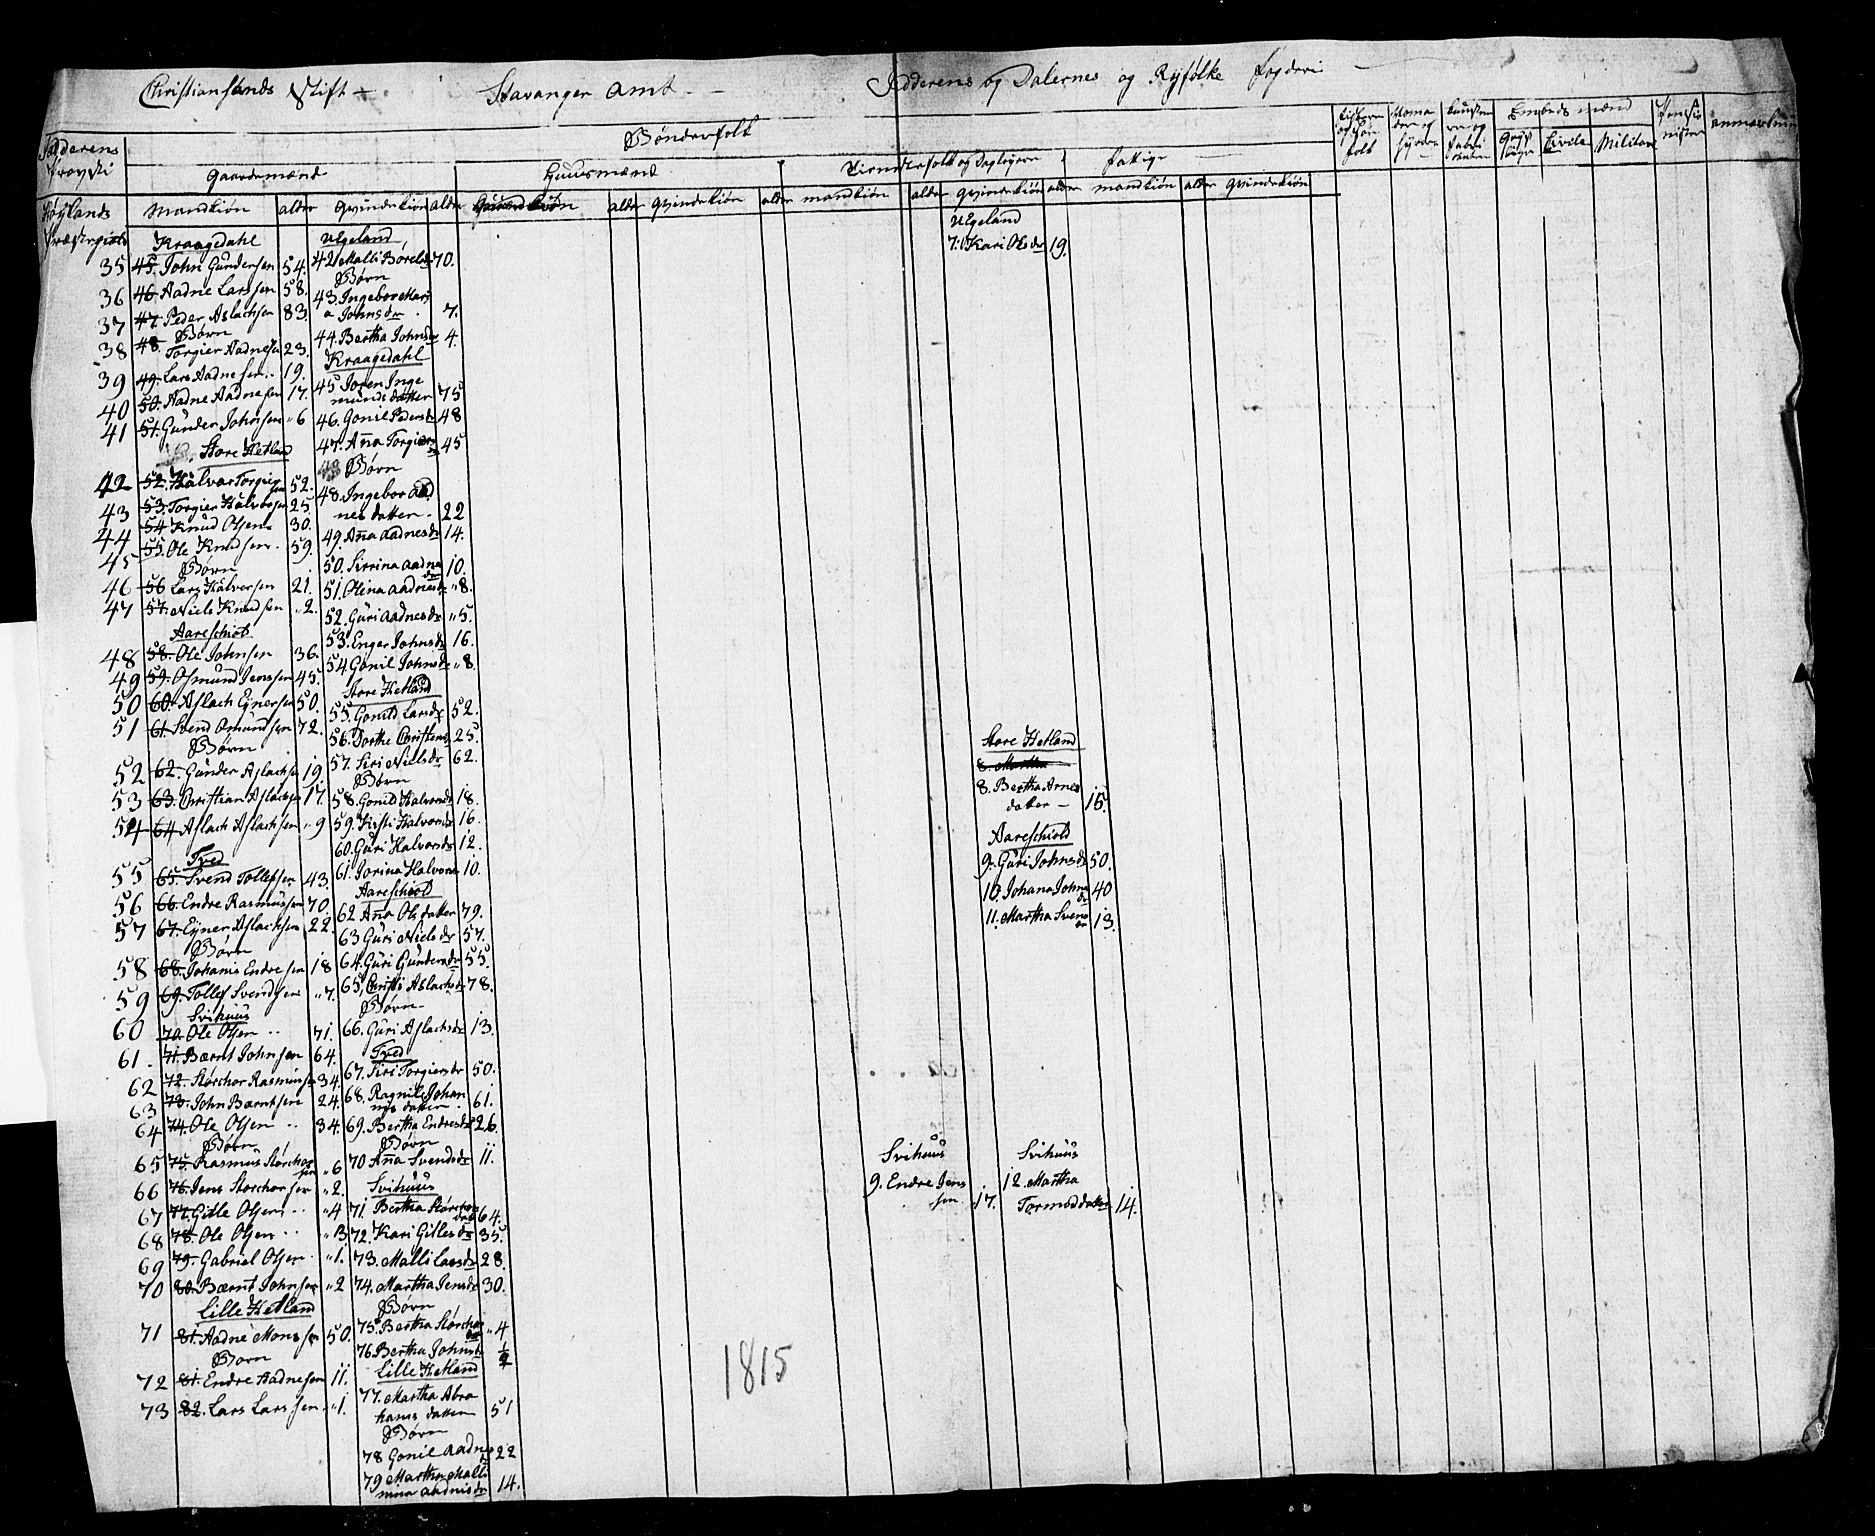 Christiansands Stift
Stavanger Amt
Jedderens og Dalernes og Ryfølke fogderi
Jedderens
Provsti
Bønderfolk
Embeds mænd
gaardemænd
Huusmænd
Tienestefolk og Dagleyere
fattige
Civile
Militære
anmærkning
Høylands
Præstegield
Mandkiøn alder Qvindekiøn alder
alder qvindekiøn alder mandkiøn alder qvindekiøn alder mandkiøn alder qvindekiøn
Kraagedahl
35 45. John Gundersen 54.
36 46 Aadne Larssen 58.
37 47. Peder Aslachsen 83.
Børn
38 48. Torgier Aadnesen 23.
39 49. Lars Aadnesen 19.
40 50. Aadne Aadnesen 17.
41 51. Gunder Johnsen " 6
Store Hetland
42 52. Halvar Torgiersen 52.
43 53. Torgier Halversen 25
44 54 Knud Olsen 30.
45 55. Ole Knudsen 59.
Børn
46 56 Lars Halversen 21.
47 57. Niels Knudsen " 2.
Aareschiold
48 58. Ole Johnsen 36.
49 59. Osmund Jenssen 45.
50 60. Aslach Eynersen 50.
51 61. Svend Omundsen 72.
Børn
52 62. Gunder Aslachsen 19.
53 63. Christian Aslachsen 17.
54 64 Aslach Aslachsen " 9
Tved
55 65. Svend Tollefsen 43.
56 66. Endre Rasmussen 70.
57 67. Eyner Aslachsen 22.
Børn
58 68. Johanis Endresen 18
59 69. Tollef Svendsen " 7.
Svihuus
60 70. Ole Olsen 71.
61. 71. Bærnt Johnsen 64.
62 72. Størchor Rasmusen 34.
63 73. John Bærntsen 24.
64 74. Ole Olsen 34.
Børn
65 75. Rasmus Størchorsen " 6
66 76. Jens Storchorsen " 2.
67 77. Gitle Olsen " 4
68 78. Ole Olsen " 3
69 79. Gabriel Olsen " 1.
70 80. Bærnt Johnsen " 2
Lille Hetland
71 81. Aadne Monssen 50.
Børn
72 81. Endre Aadnesen 11.
73 82. Lars Larssen " 1.
Uegeland
42 Malli Børelsdr 70.
Børn
43. Ingebor Mari
a Johnsdr 7.
44. Bertha Johnsdr 4.
Kraagedahl
45 Joren Inge
munds datter 75
46. Gonil Pedersdr 48
47. Aña Torgiersdr 45
Børn
48. Ingebor Aad
nes datter 22
49. Aña Aadnesdr 14.
50. Sirrina Aadnesdr 10.
51. Olena Aadnesdr " 8.
52. Guri Aadnesdr " 5.
53. Enger Johnsdr 16.
54. Gonil Johnsdr " 8.
Store Hetland
55. Gonild Larsdr 52.
56. Dorthe Christens 25.
57. Siri Nielsdr 62.
Børn
58. Gonild Halvorsdr 18.
59. Kisti Halvorsdr 16.
60. Guri Halvorsdr 12.
61. Jorina Halvors 10.
Aareschiold
62. Aña Olsdatter 79.
63 Guri Nielsdr 57.
64. Guri Gundersdr 55.
65. Christi Aslachsdr 78.
Børn
66. Guri Aslachsdr 13.
Tved
67. Siri Torgiersdr 50.
68. Ragnile Johan
nis datter 61.
69. Bertha Endresdr 26
Børn
70 Aña Svendsdr 11.
Svihuus
71. Bertha Størchors
datr 64.
72. Kari Gitlesdr 35.
73. Malli Larsdr 28.
74. Martha Jensdr 30.
Børn
75. Bertha Størchorsdr " 4
76 Bertha Johnsdr ½
Lille Hetland
77. Martha Abra
hams datter 51
Børn
78 Gonil Aadnesdr 22
79 Martha Malli
nina Aadnisdr 14.
Uegeland
7. Kari Olsdr 19.
Store Hetland
8. Martha
8. Bertha Arnes
datter 15.
Aareschiold
9. Guri Johnsdr 50.
10. Johana Johnsdr 40
11. Martha Svensdr 13.
Svihuus
9. Endre Jens
sen 17.
Svihuus
12. Martha
Tormoddatter 14.
1815